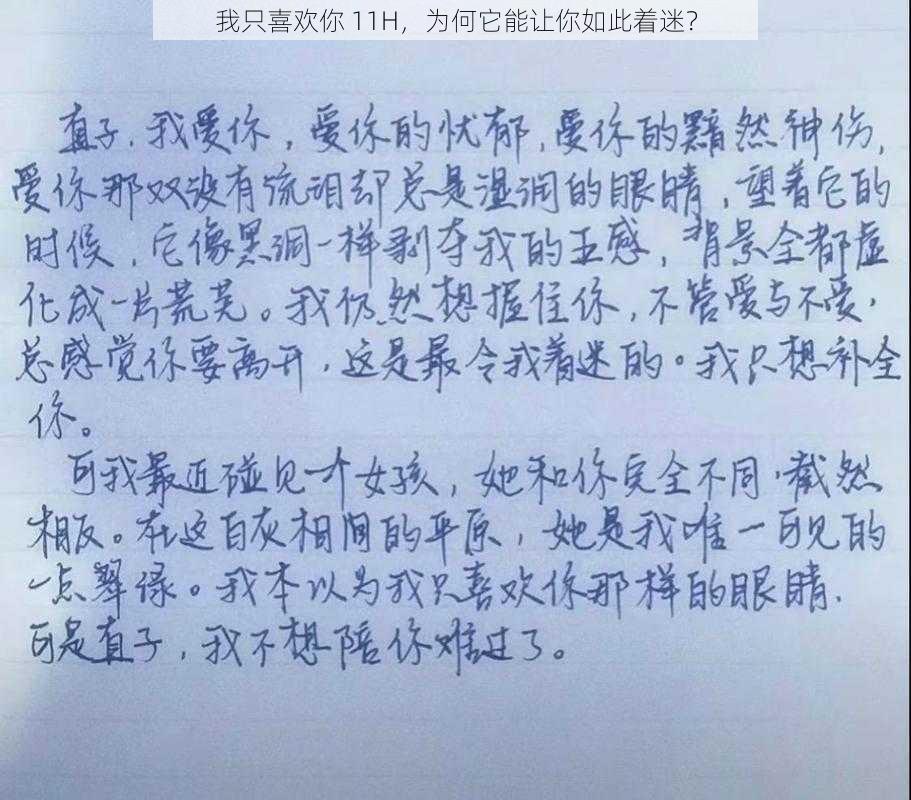 我只喜欢你 11H，为何它能让你如此着迷？
直子，我爱你，爱你的忧郁，爱你的黯然神伤，
爱你那双没有流泪却总是湿润的眼睛，望着它的
时候，它像黑洞一样剥夺我的五感，背景全都虚
化成一片荒芜。我仍然想握住你，不管爱与不爱，
总感觉你要离开，这是最令我着迷的。我只想补全
你。
可我最近碰见一个女孩，她和你完全不同，截然
相反。在这白灰相间的平原，她是我唯一可见的
一点翠绿。我本以为我只喜欢你那样的眼睛，
可是直子，我不想陪你难过了。